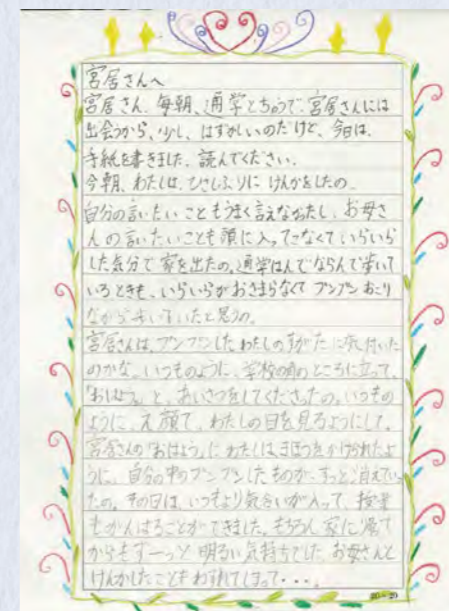 宮居さんへ
宮居さん、毎朝、通学とちゅうで、宮居さんには
出会うから、少し、はずかしいのだけど、今日は、
手紙を書きました。読んでください。
今朝、わたしは、ひさしぶりに けんかをしたの。
自分の言いたいこともうまく言えなかったし、お母さ
んの言いたいことも頭に入ってこなくていらいら
した気分で家を出たの。通学はんでならんで歩いて
いるときも、いらいらがおさまらなくてプンプンおこり
ながら歩いていたと思うの。
宮居さんは、プンプンしたわたしのすがたに気付いた
のかな。いつものように、学校の前のところに立って、
「おはよう」と、あいさつをしてくださったの。いつもの
ように、え顔で、わたしの目を見るようにして。
宮居さんの「おはよう」に わたしは、まほうをかけられたよ
うに、自分の中のプンプンしたものが、すっと消えてい
ったの。その日は、いつもより気合いが入って、授業
もがんばることができました。もちろん、家に帰って
からもずーっと 明るい気持ちでした。お母さんと
けんかしたことも わすれてしまって・・・。
20×20